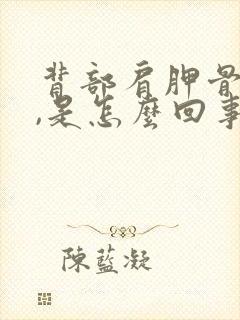 背部肩胛骨
,是怎麼回事
陳藍凝